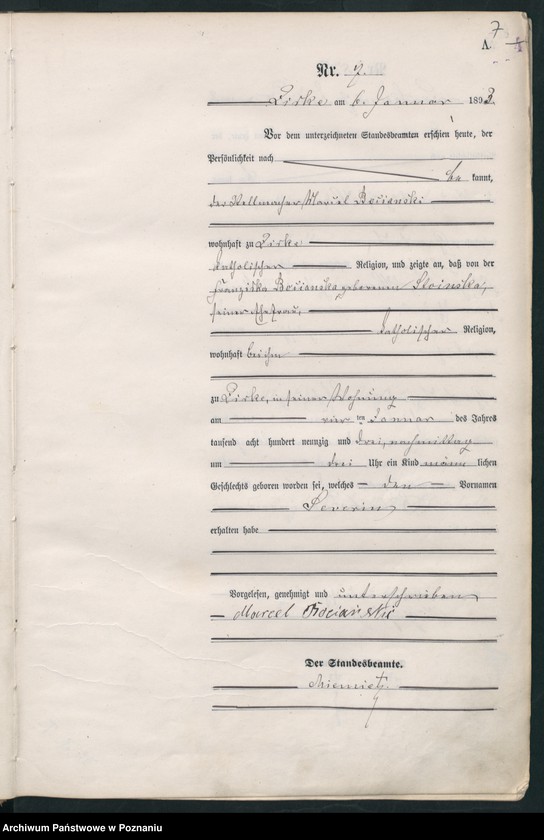 7
A.
Nr. 7.
Zirke am 6. Januar 1893.
Vor dem unterzeichneten Standesbeamten erschien heute, der
Persönlichkeit nach
be kannt,
der Stellmacher Marcel Bocianski
wohnhaft zu Zirke
katholischer Religion, und zeigte an, daß von der
Franziska Bocianska geborenen
seiner Ehefrau,
katholischer Religion,
wohnhaft bei ihm
zu Zirke, in seiner Wohnung
am vier ten Januar des Jahres
tausend acht hundert neunzig und drei, nachmittag
um drei Uhr ein Kind männ lichen
Geschlechts geboren worden sei, welches den Vornamen
Severin
erhalten habe
Vorgelesen, genehmigt und unterschrieben
Marcel Bocianski
Der Standesbeamte.
Archiwum Państwowe w Poznaniu